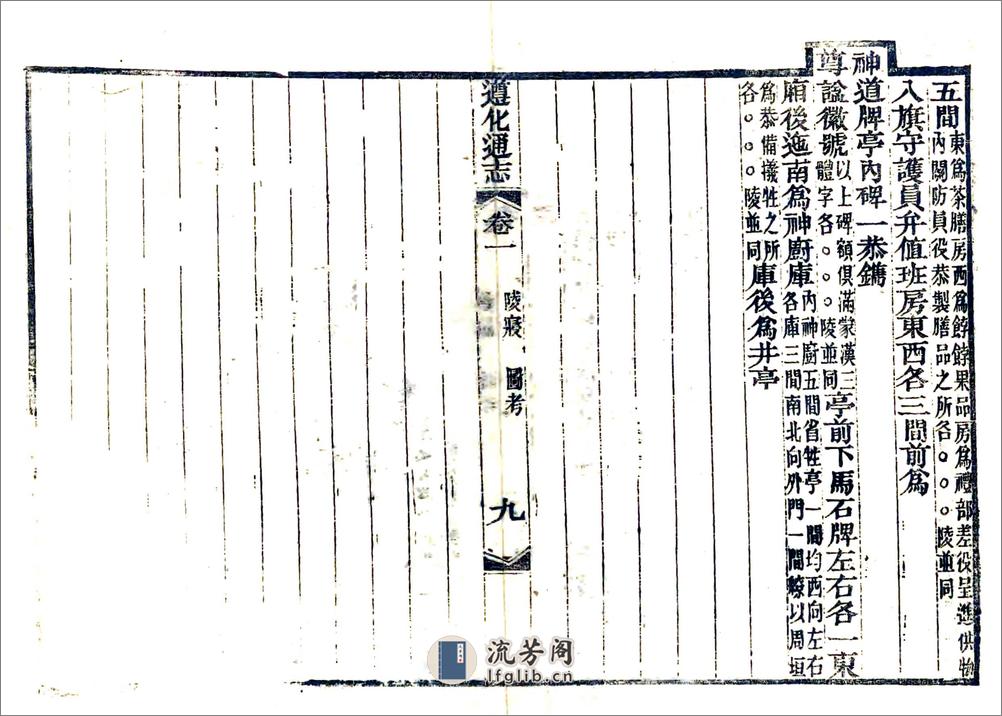 五間東爲茶膳房西爲餑餑果品房爲禮部差役呈進供物
內關防員役恭製膳品之所各。。。陵並同
八旗守護員弁值班房東西各三間前爲
神道牌亭內碑一恭鐫
尊諡徽號以上碑額俱滿蒙漢三
體字各。。。陵並同亭前下馬石牌左右各一東
廂後迤南爲神廚庫內神廚五間省牲亭一間均西向左右
各庫三間南北向外門一間繚以周垣
爲恭備犧牲之所
各。。。陵並同庫後爲井亭
遵化通志 卷一 陵寢 圖考 九
流芳阁
lfglib.cn